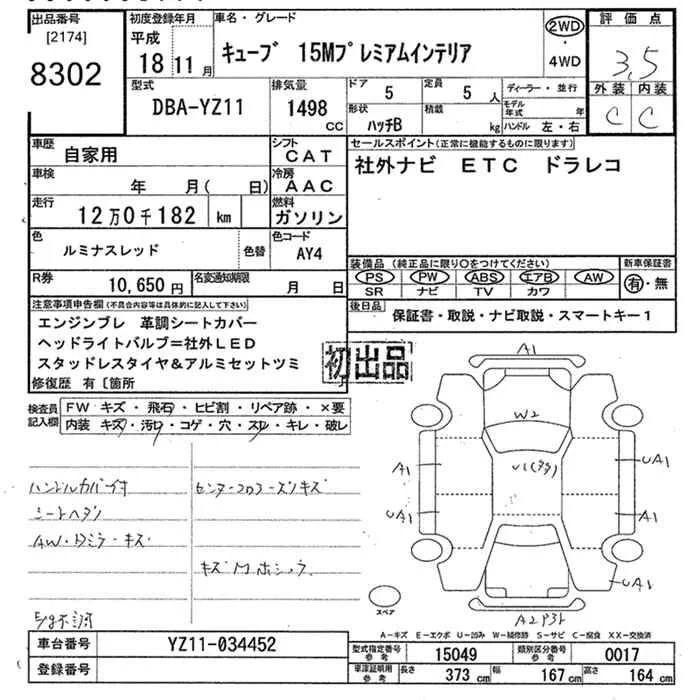 出品番号
[2174]
8302
初度登録年月
平成
18 11 月
車名・グレード
キューブ 15Mプレミアムインテリア
2WD
・
4WD
評価点
3.5
外装 内装
C C
型式
DBA-YZ11
排気量
1498
CC
ドア
5
定員
5 人
形状
ハッチB
積載
kg
ディーラー・並行
モデル年式 年
ハンドル 左・右
車歴
自家用
シフト
CAT
車検
年 月( 日)
冷房
AAC
走行
12万0千182 km
燃料
ガソリン
色
ルミナスレッド
色替
色コード
AY4
R券
10,650円
名変通知期限
月 日
セールスポイント(正常に機能するものに限ります)
社外ナビ ETC ドラレコ
装備品 (純正品に限り○をつけてください)
PS PW ABS エアB AW
SR ナビ TV カワ
新車保証書
有・無
後日品
保証書・取説・ナビ取説・スマートキー1
注意事項申告欄(不具合内容等は具体的に記入して下さい)
エンジンブレ 革調シートカバー
ヘッドライトバルブ=社外LED
スタッドレスタイヤ&アルミセットツミ
修復歴 有〔箇所
初出品
検査員記入欄
FW キズ・飛石・ヒビ割・リペア跡・×要
内装 キズ・汚レ・コゲ・穴・スレ・キレ・破レ
ハンドルカバー付
シートヘタリ
AW・ドミラーキズ
センターコンソールキズ
A1
W2
A1
UA1
U1(多多)
UA1
A1
UA1
スペア
A2
A-キズ E-エクボ U-凹み W-補修跡 S-サビ C-腐食 XX-交換済
車台番号
YZ11-034452
登録番号
型式指定番号
参考
15049
類別区分番号
参考
0017
車庫証明用
参考
長さ
373 cm
幅
167 cm
高さ
164 cm